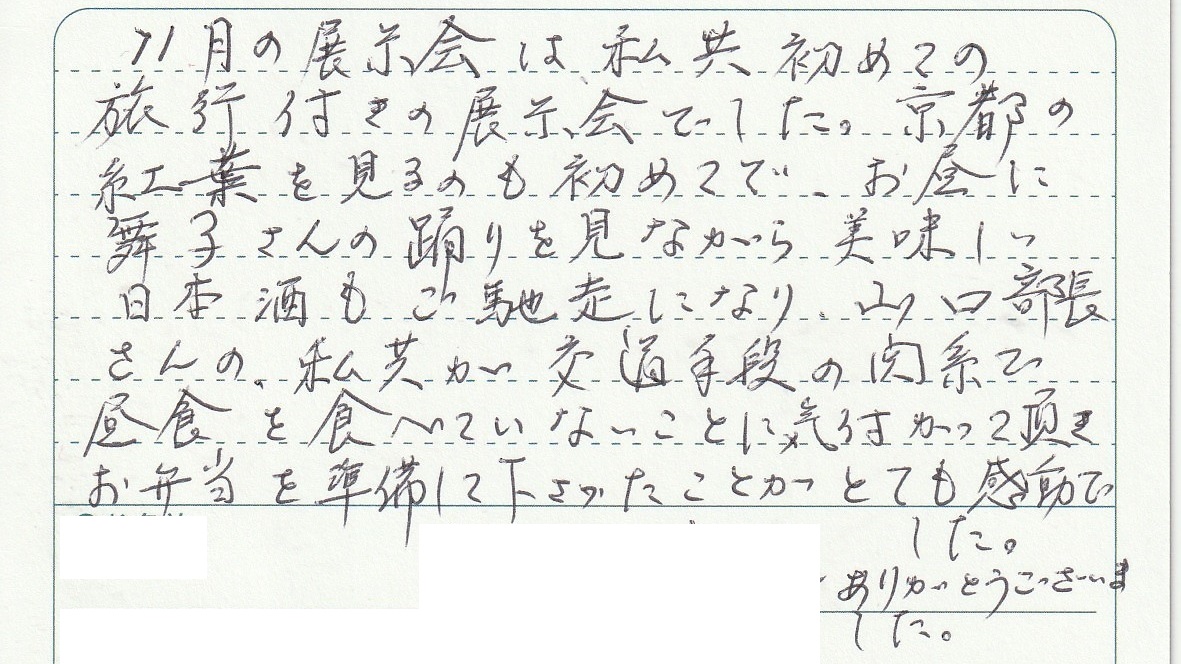 11月の展示会は私共初めての
旅行付きの展示会でした。京都の
紅葉を見るのも初めてで、お昼に
舞子さんの踊りを見ながら美味しい
日本酒もご馳走になり、山口部長
さんの、私共が交通手段の関係で
昼食を食べていないことに気付かって頂き
お弁当を準備して下さったことがとても感動で
した。
ありがとうございま
した。